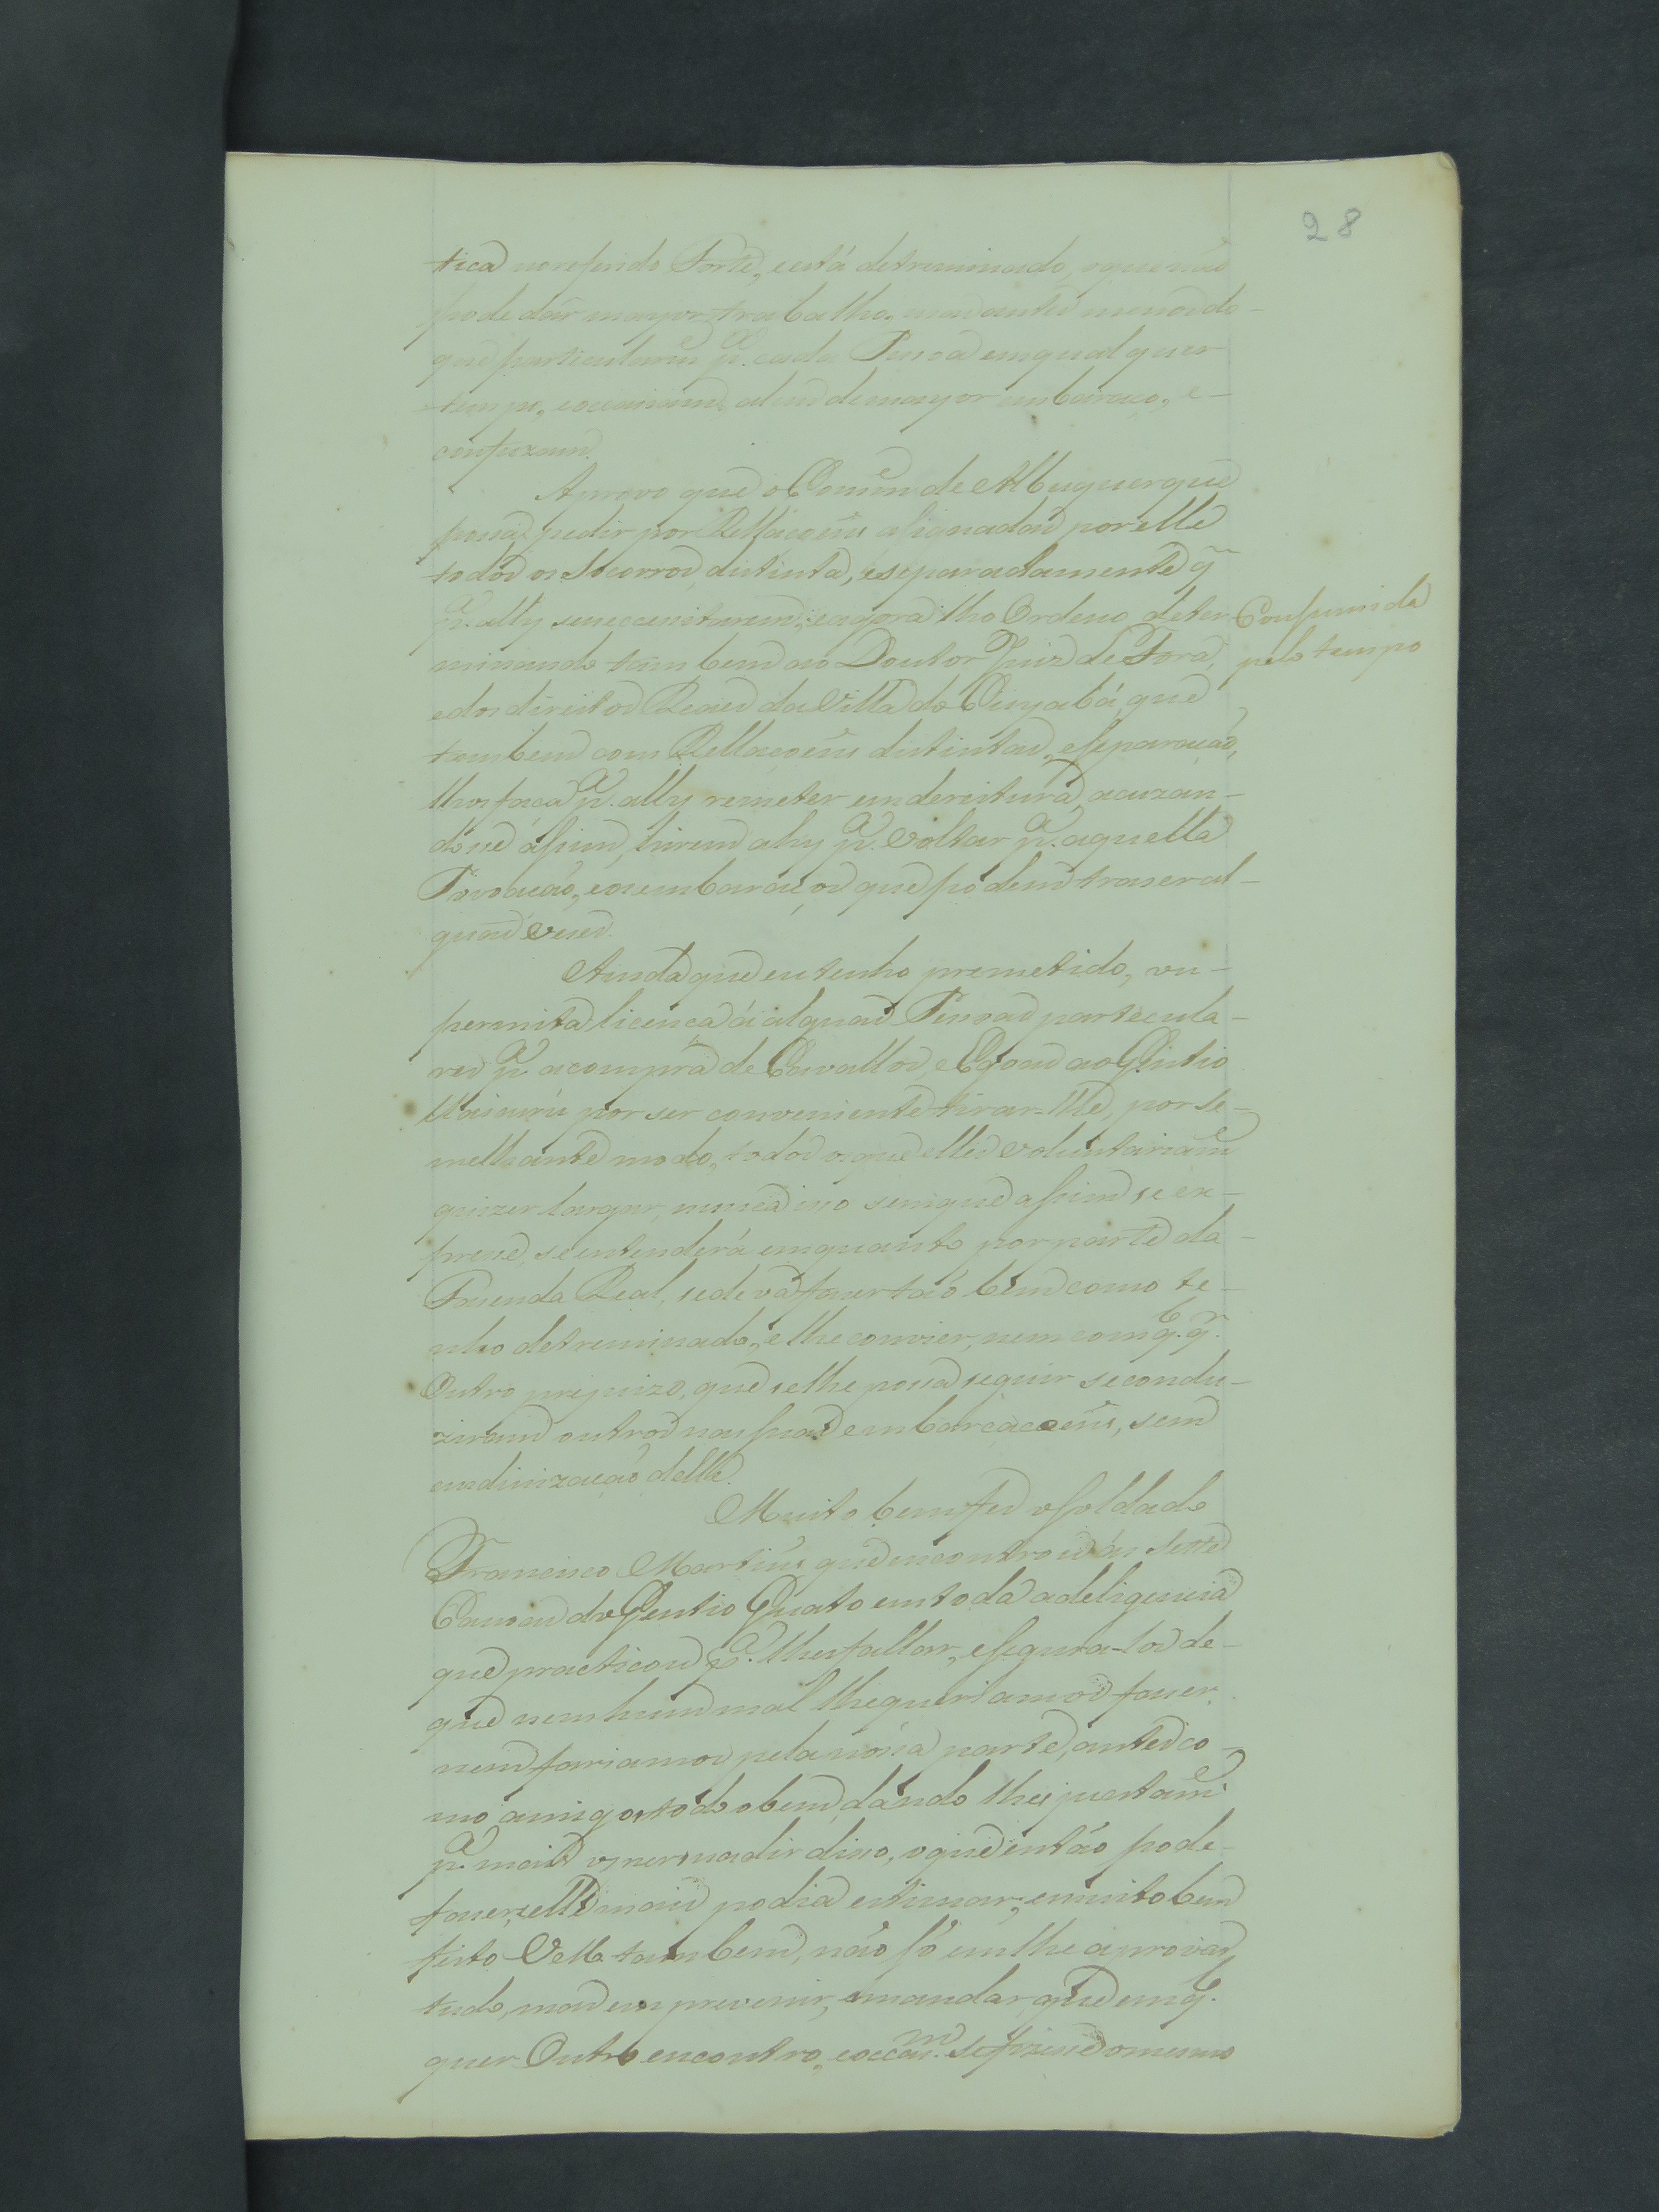 28
tica no referido Forte, está detreminado, o que não
pode dar mayor trabalho, mas antes menos do
que particularm.e p.a cada Pessoa em qualquer
tempo, e occasiam, alem de mayor embaraço, e
confuzam.
Aprovo que o Comm.e de Albuquerque
possa pedir por Rellaçoens asignadas por elle
todos os Socorros distinta, e separadamente q̃
p.a ally se necesitarem; e agora lho Ordeno deter
minando tambem ao Doutor Juiz de Fora,
e dos direitos Reaes da Villa do Cuyabá, que
tambem com Rellaçoens distintas, e separação,
lhos faça p.a ally remeter em dereitura, acuzan-
dose asim, hirem ahy p.a Voltar p.a aquella
Povoação, e os embaraços que podem trazer al-
guas vezes.
Consumida
pelo tempo
Ainda que eu tenho premetido, ou
permita licença á alguas Pessoas particula-
res p.a a compra de Cavallos, e Egoas ao Gentio
Uaicurú por ser conveniente tirar-lhe, por se-
melhante modo, todos os que elles voluntariam.e
quizer largar, nunca isso sem que asim se ex-
prese, se entenderá emquanto por parte da
Fazenda Real, se deva fazer tão bem como te-
nho detreminado, e lhe convier, nem com q.l q.r
Outro prejuizo, que se lhe possa seguir se condu-
ziram outros nas suas embarcaçoens, sem
endinização delle.
Muito bem fes o Soldado
Francisco Martins que encontrou ás sette
Canoas do Gentio Guato em toda a deligencia
que practicou p.a lhes fallar, e segura-los de
que nenhum mal lhe queriamos fazer,
nem fariamos pela nossa parte, antes co-
mo amigos todo o bem, dando lhes juntam.e
p.a mais os persuadir disso, o que então pode
fazer, e elle mais podia estimar; e muito bem
feito VM.ce tambem, não só em lhe aprovar
tudo, mas em prevenir, e mandar, que em q.l
quer Outro encontro, e occaz.m se fizese o mesmo